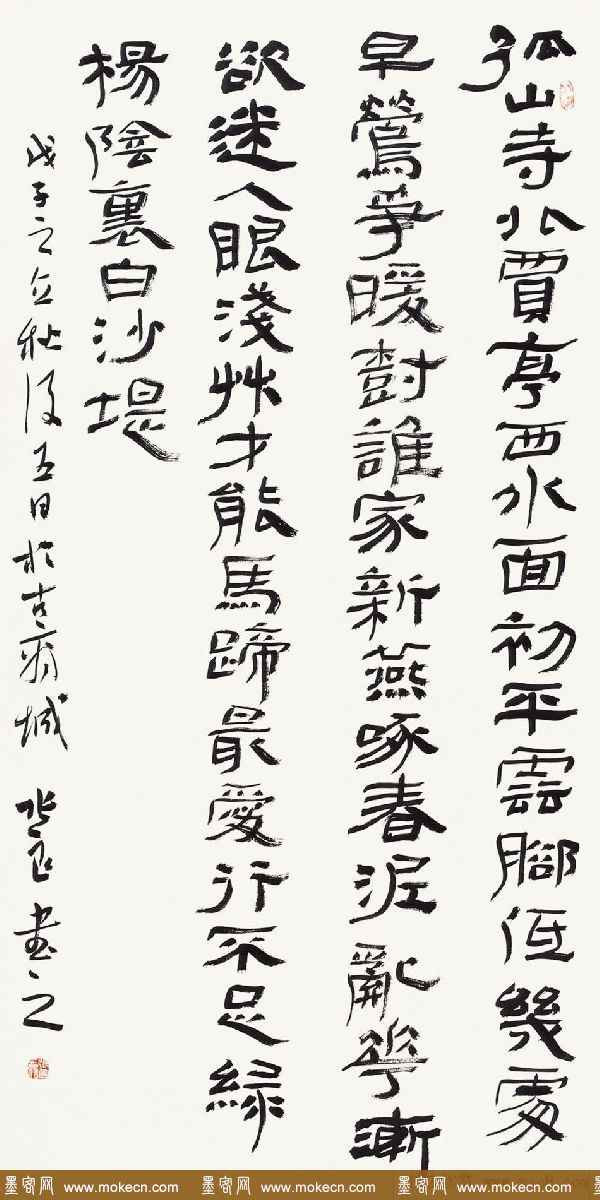 孤山寺北賈亭西水面初平雲腳低幾處
早鶯爭暖尌誰家新燕啄春泥亂花漸
欲迷人眼淺艸才能馬蹄最愛行不足綠
楊陰裏白沙堤
戊子之立秋後五日於古城書之
墨客网 www.mokecn.com 墨客网 www.mokecn.com 墨客网 www.mokecn.com